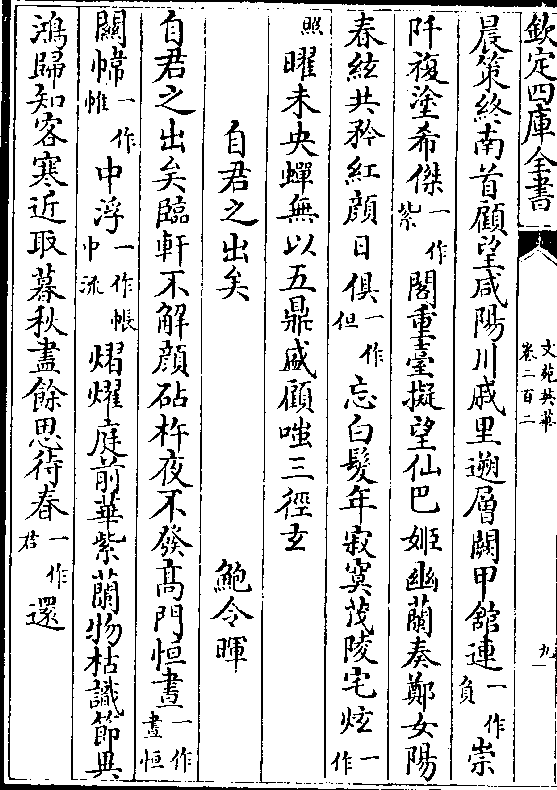 欽定四庫全書
文苑英華
卷二百二
九
晨策終南首顧望咸陽川戚里遡層闕甲館連一作負崇
阡複塗希傑一作紫閣重臺擬望仙巴姬幽蘭奏鄭女陽
春絃共矜紅顔日俱一作但忘白髪年寂寞茂陵宅炫一作
照曜未央蟬無以五鼎盛顧嗤三徑玄
自君之出矣
鮑令暉
自君之出矣臨軒不解顔砧杵夜不發髙門恒晝一作晝恒
關幃一作帷中浮一作帳中流熠燿庭前華紫蘭物枯識節異
鴻歸知客寒近取暮秋盡餘思待春一作君還